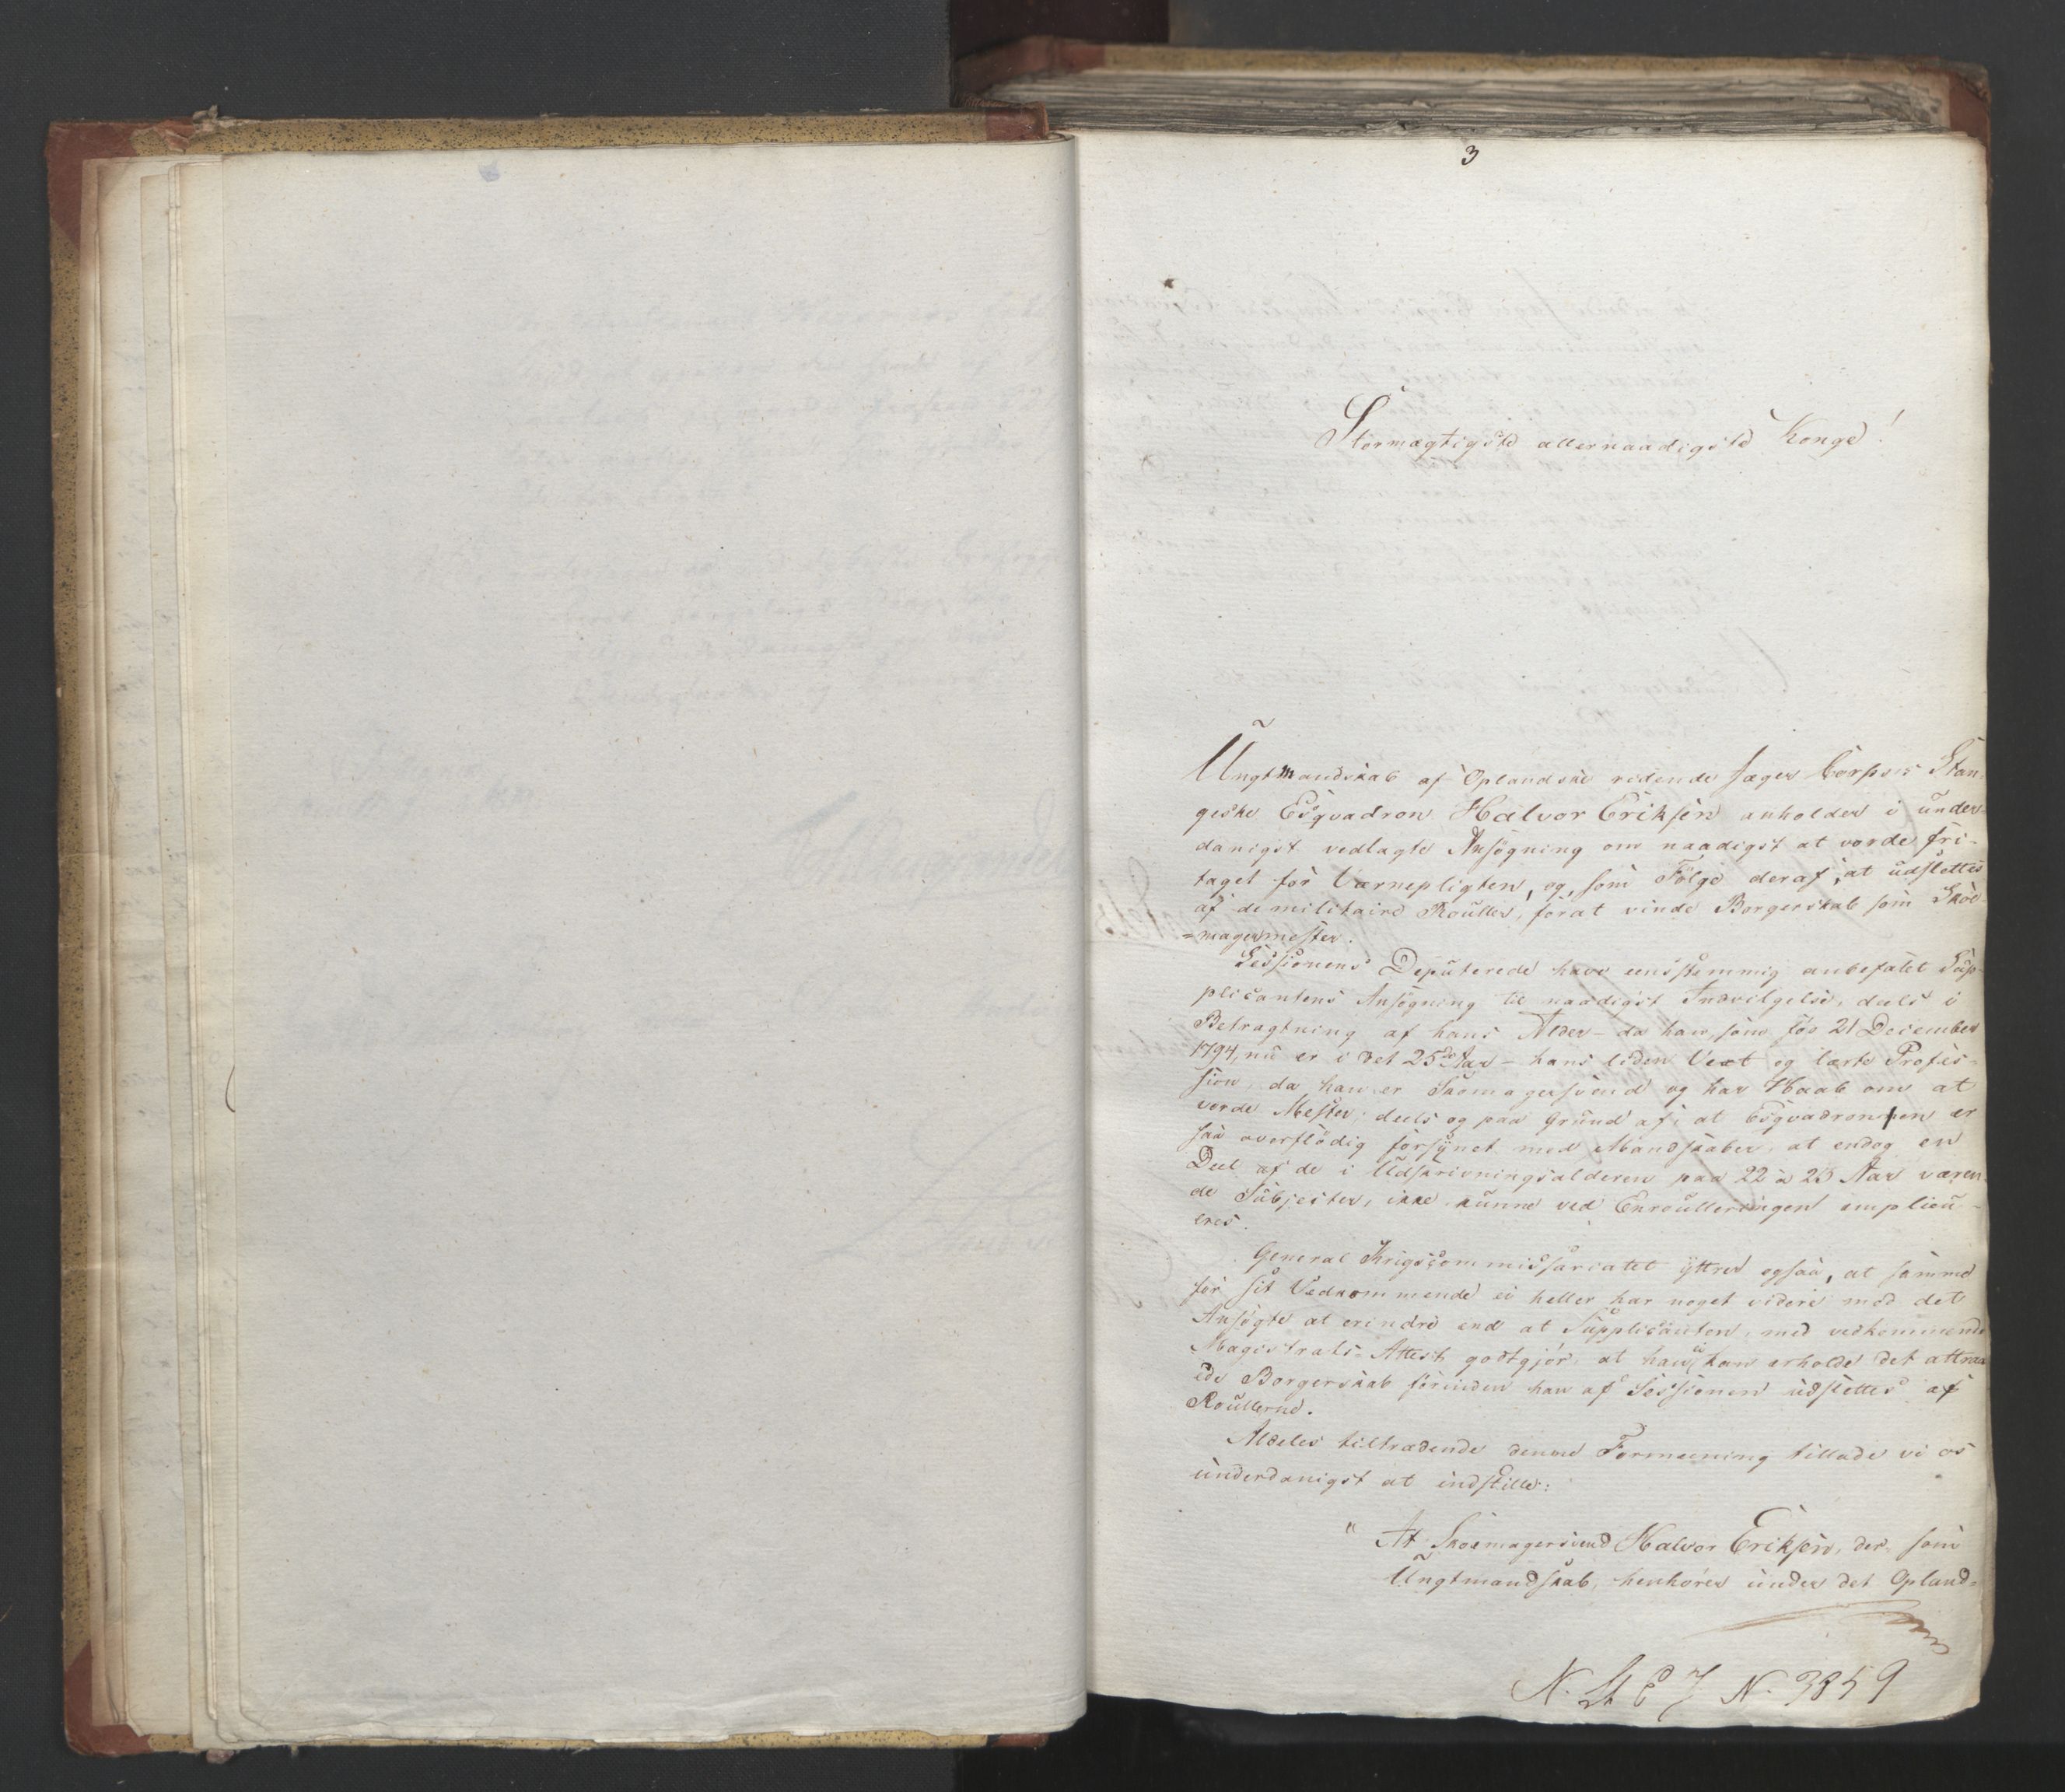 3
Stormægtigste allernaadigste Konge!
Ungtmandskab af Oplandske ridende Jæger Corpses Stan-
geske Esqvadron Halvor Eriksen anholder i under-
danigst vedlagte Ansøgning om naadigst at vorde fri-
taget for Værnepligten, og, som Følge deraf, at udslettes
af de militaire Rouller, forat vinde Borgerskab som Skoe-
=magermester.
Sessionens Deputerede have eensstemmig anbefalet Sup-
plicantens Ansøgning til naadigst Indvilgelse, deels i
Betragtning af hans Alder – da han, som født 21 December
1794, nu er i det 25de Aar – hans liden Vext og lærte Profes-
sion, da han er Skomagersvend og har Haab om at
vorde Mester; deels og paa Grund af, at Esqvadronen er
saa overflødig forsynet med Mandskaber, at endog en
Deel af de i Udskrivningsalderen paa 22 a 23 Aar væren-
de Subjecter, ikke kunne ved Enroulleringen emplieu-
eres.
General Krigscommissariatet yttrer ogsaa, at samme
for sit Vedkommende ei heller har noget videre mod det
Ansøgte at erindre end at Supplicanten, med vedkommende
Magistrats-Attest godtgjør, at han ei kan erholde det attraa-
ede Borgerskab forinden han af Sessionen udslettes af
Roullerne.
Aldeles tiltrædende denne Formeening tillade vi os
underdanigst at indstille:
" At Skoemagersvend Halvor Eriksen, der som
Ungtmandskab, henhører under det Opland-
N. 3859